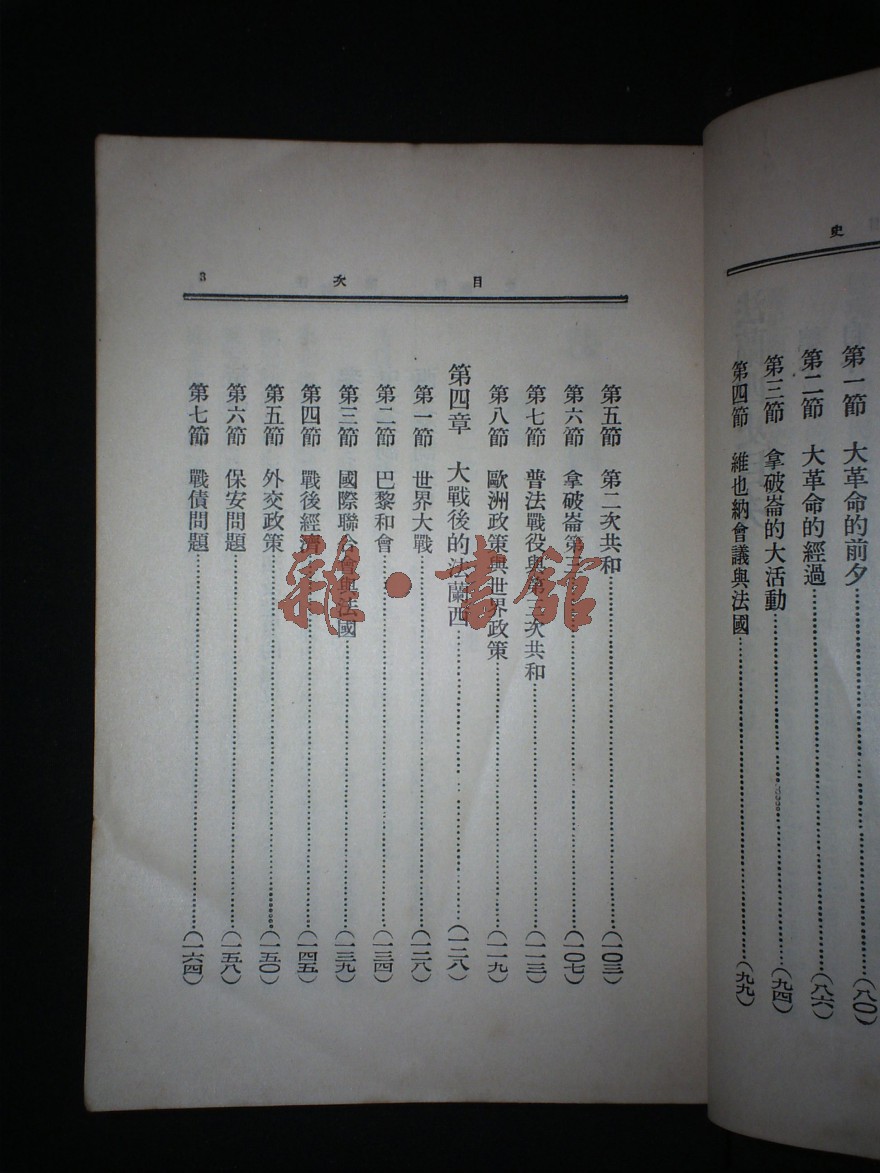 史
第一節 大革命的前夕……(八〇)
第二節 大革命的經過……(八六)
第三節 拿破崙的大活動……(九四)
第四節 維也納會議與法國……(九九)
目次 3
第五節 第二次共和……(一〇三)
第六節 拿破崙第三……(一〇七)
第七節 普法戰役與第三次共和……(一一三)
第八節 歐洲政策與世界政策……(一一九)
第四章 大戰後的法蘭西……(一二八)
第一節 世界大戰……(一二八)
第二節 巴黎和會……(一三四)
第三節 國際聯合會與法國……(一三九)
第四節 戰後經濟……(一四五)
第五節 外交政策……(一五〇)
第六節 保安問題……(一五八)
第七節 戰債問題……(一六四)
雜·書館